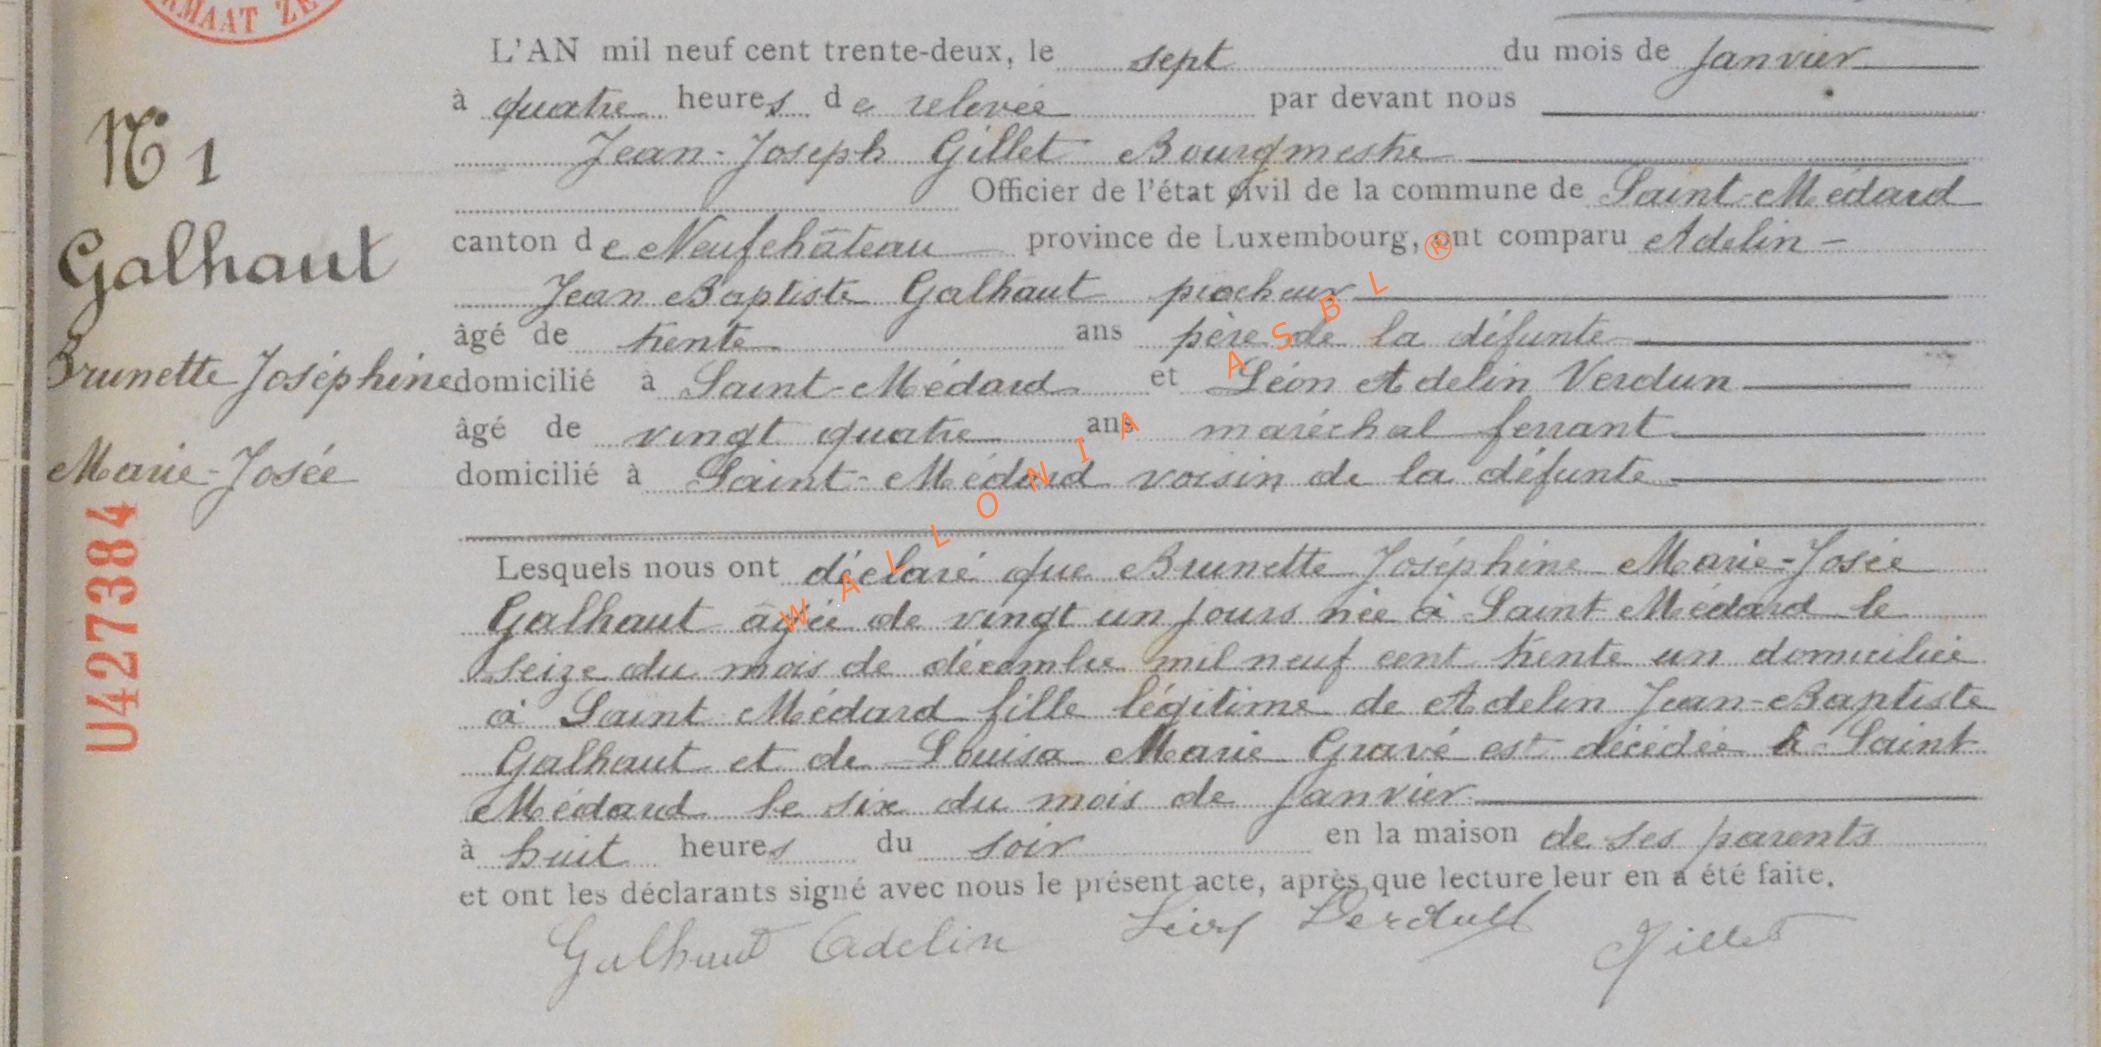 MAAT ZE
L'AN mil neuf cent trente-deux, le sept du mois de Janvier
à quatre heures de relevée par devant nous
Jean-Joseph Gillet Bourgmestre
Officier de l'état civil de la commune de Saint-Médard
canton de Neufchâteau province de Luxembourg, ont comparu Adelin-
Jean Baptiste Galhaut piocheur
âgé de trente ans père de la défunte
domicilié à Saint-Médard et Léon Adelin Verdun
âgé de vingt quatre ans maréchal ferrant
domicilié à Saint-Médard voisin de la défunte
Lesquels nous ont déclaré que Brunette Joséphine Marie-Josée
Galhaut âgée de vingt un jours née à Saint Médard le
seize du mois de décembre mil neuf cent trente un domiciliée
à Saint Médard fille légitime de Adelin Jean-Baptiste
Galhaut et de Louisa Marie Gravé est décédée à Saint
Médard le six du mois de Janvier
à huit heures du soir en la maison de ses parents
et ont les déclarants signé avec nous le présent acte, après que lecture leur en a été faite.
Galhaut Adelin Léon Gillet
N 1
Galhaut
Brunette Joséphine
Marie-Josée
U427384
WALLONIA ASBL ®